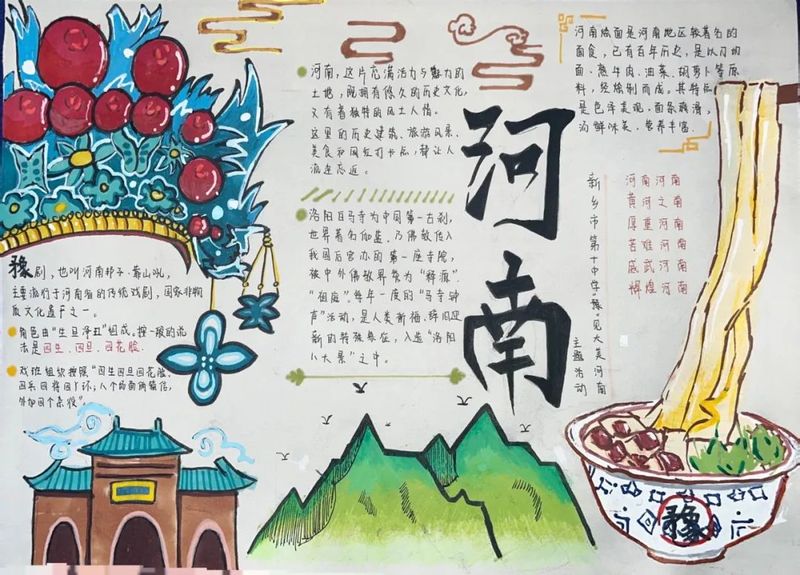 河南，这片充满活力与魅力的
土地，既拥有悠久的历史文化，
又有着独特的风土人情。
这里的历史建筑、旅游风景、
美食和网红打卡点，都让人
流连忘返。
洛阳白马寺为中国第一古刹，
世界著名伽蓝，乃佛教传入
我国后官办的第一座寺院，
被中外佛教界誉为“释源”、
“祖庭”。每年一度的“马寺钟
声”活动，是人类祈福、辞旧迎
新的特殊象征，入选“洛阳
八大景”之中。
河南
河南烩面是河南地区较著名的
面食，已有百年历史，是以刀切
面、熟牛肉、油菜、胡萝卜等原
料，经烩制而成。其特点
是色泽美观，面条爽滑，
汤鲜味美，营养丰富。
新乡市第十中学“豫”见大美河南
主题活动
河南河南
黄河之南
厚重河南
苦难河南
威武河南
辉煌河南
豫剧，也叫河南梆子、靠山吼，
主要流行于河南省的传统戏剧，国家非物
质文化遗产之一。
角色由“生旦净丑”组成。按一般的说
法是四生、四旦、四花脸
戏班组织按照“四生四旦四花脸，
四兵四将四丫环；八个场面两箱倌，
外加四个杂役”。
豫